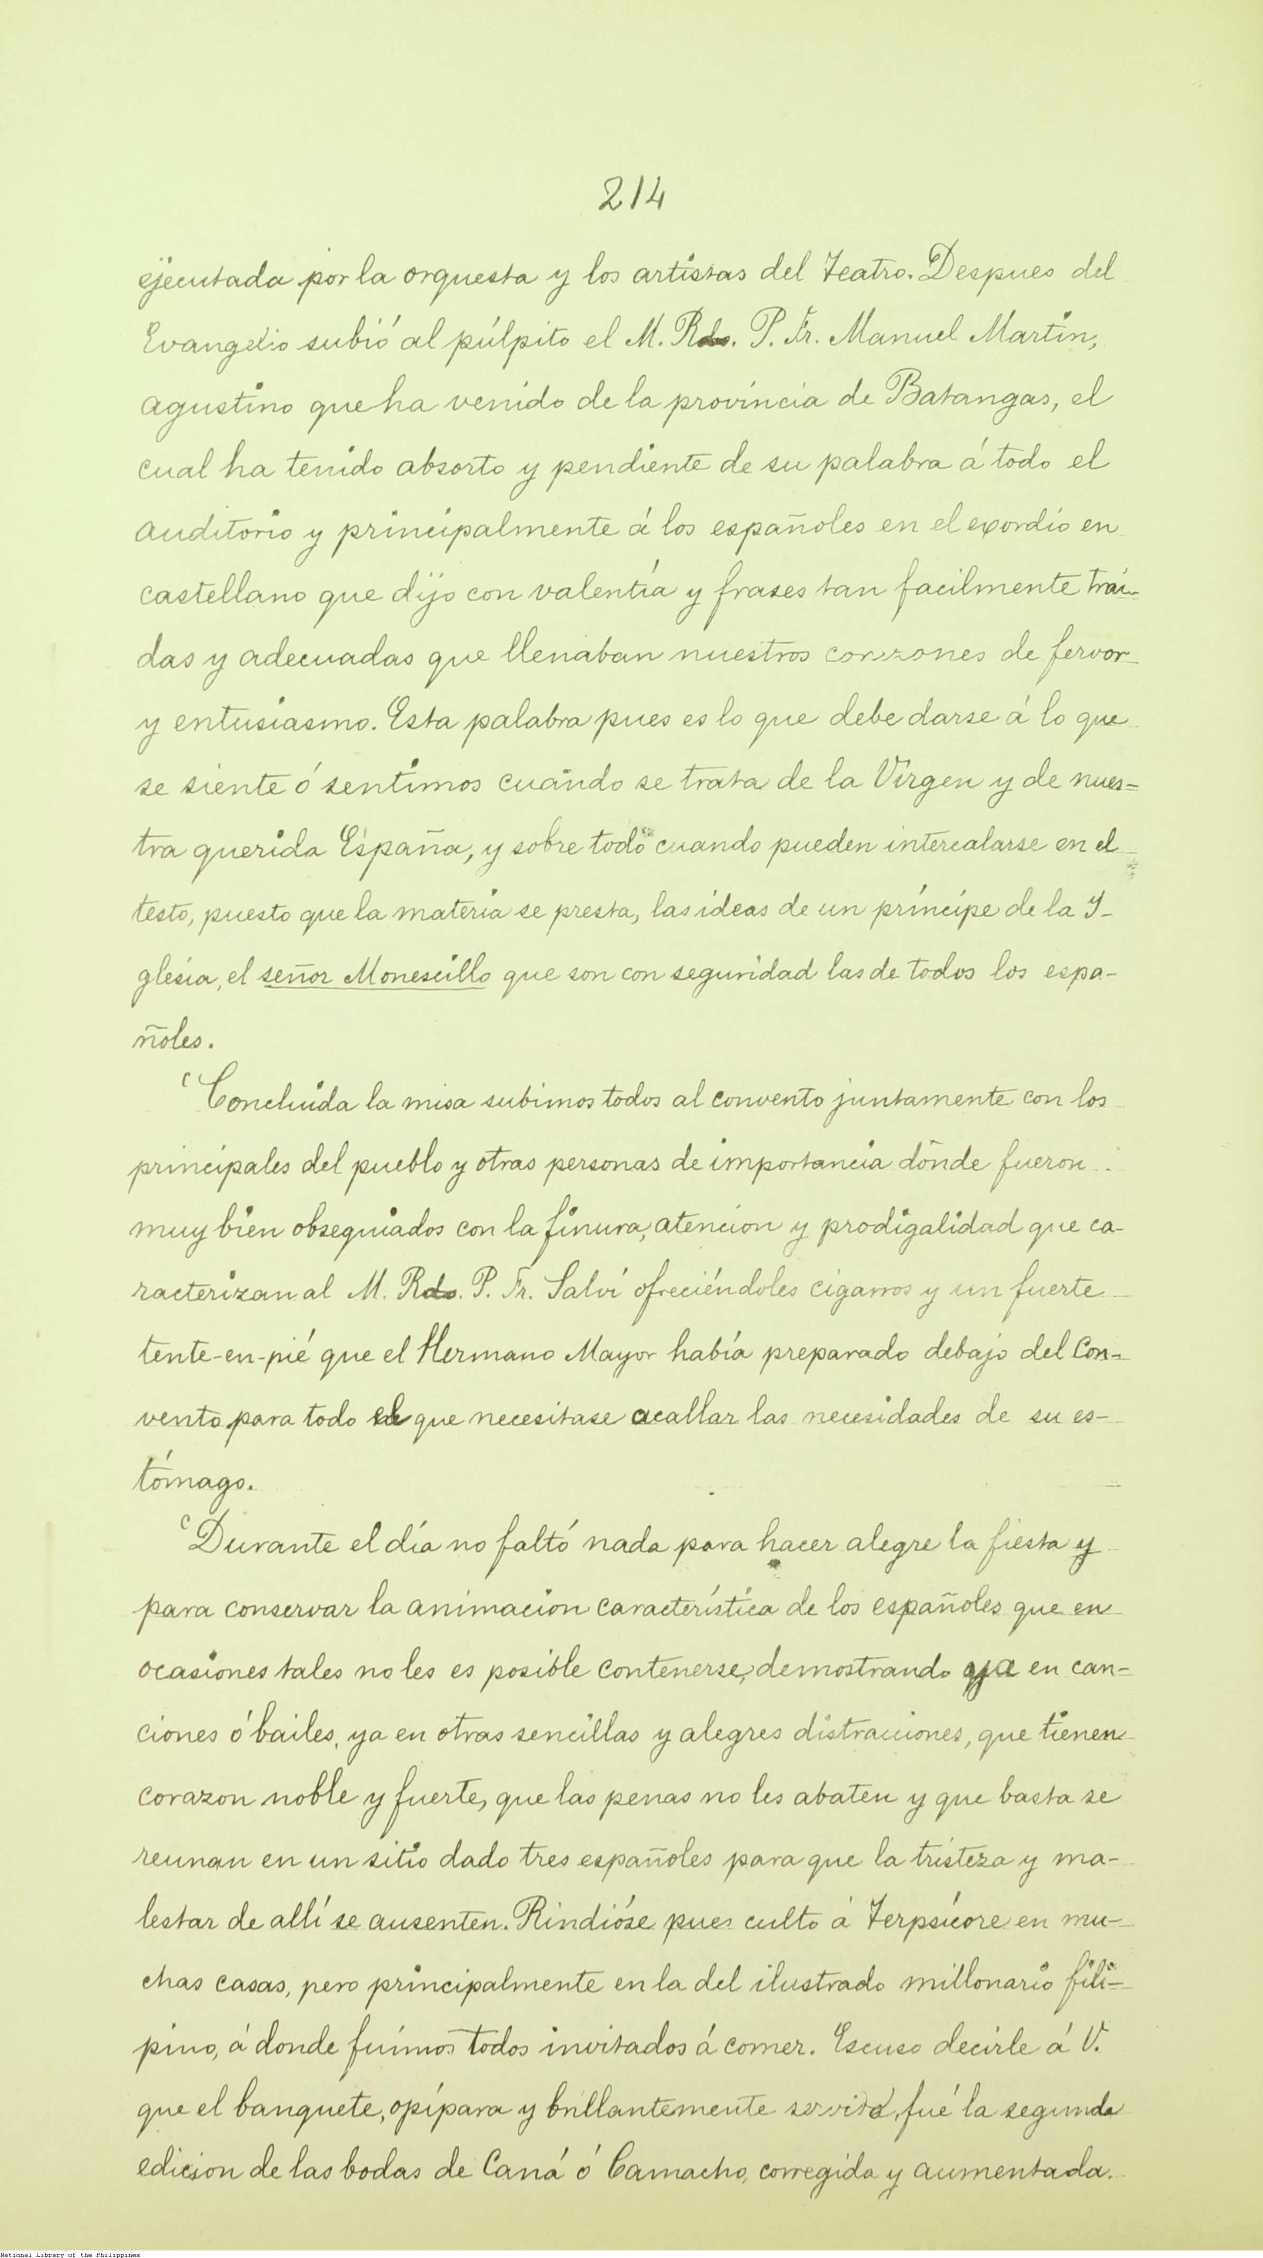 214
ejecutada por la orquesta y los artistas del Teatro. Despues del
Evangelio subió al púlpito el M. Rdo. P. Fr. Manuel Martin,
agustino que ha venido de la provincia de Batangas, el
cual ha tenido absorto y pendiente de su palabra á todo el
auditorio y principalmente á los españoles en el exordio en
castellano que dijo con valentía y frases tan facilmente trai-
das y adecuadas que llenaban nuestros corazones de fervor
y entusiasmo. Esta palabra pues es lo que debe darse á lo que
se siente ó sentimos cuando se trata de la Virgen y de nues=
tra querida España, y sobre todo cuando pueden intercalarse en el
testo, puesto que la materia se presta, las ideas de un príncipe de la I-
glesia, el señor Monescillo que son con seguridad las de todos los espa-
ñoles.
"Concluida la misa subimos todos al convento juntamente con los
principales del pueblo y otras personas de importancia donde fueron
muy bien obsequiados con la finura, atencion y prodigalidad que ca-
racterizan al M. Rdo. P. Fr. Salví ofreciéndoles cigarros y un fuerte
tente-en-pié que el Hermano Mayor había preparado debajo del Con=
vento para todo el que necesitase acallar las necesidades de su es-
tómago.
"Durante el día no faltó nada para hacer alegre la fiesta y
para conservar la animacion característica de los españoles que en
ocasiones tales no les es posible contenerse, demostrando ya en can-
ciones ó bailes, ya en otras sencillas y alegres distracciones, que tienen
corazon noble y fuerte, que las penas no les abaten y que basta se
reunan en un sitio dado tres españoles para que la tristeza y ma-
lestar de allí se ausenten. Rindióse pues culto á Terpsícore en mu-
chas casas, pero principalmente en la del ilustrado millonario fili-
pino, á donde fuimos todos invitados á comer. Escuso decirle á V.
que el banquete, opípara y brillantemente servida, fué la segunda
edicion de las bodas de Caná ó Camacho, corregida y aumentada.
National Library of the Philippines